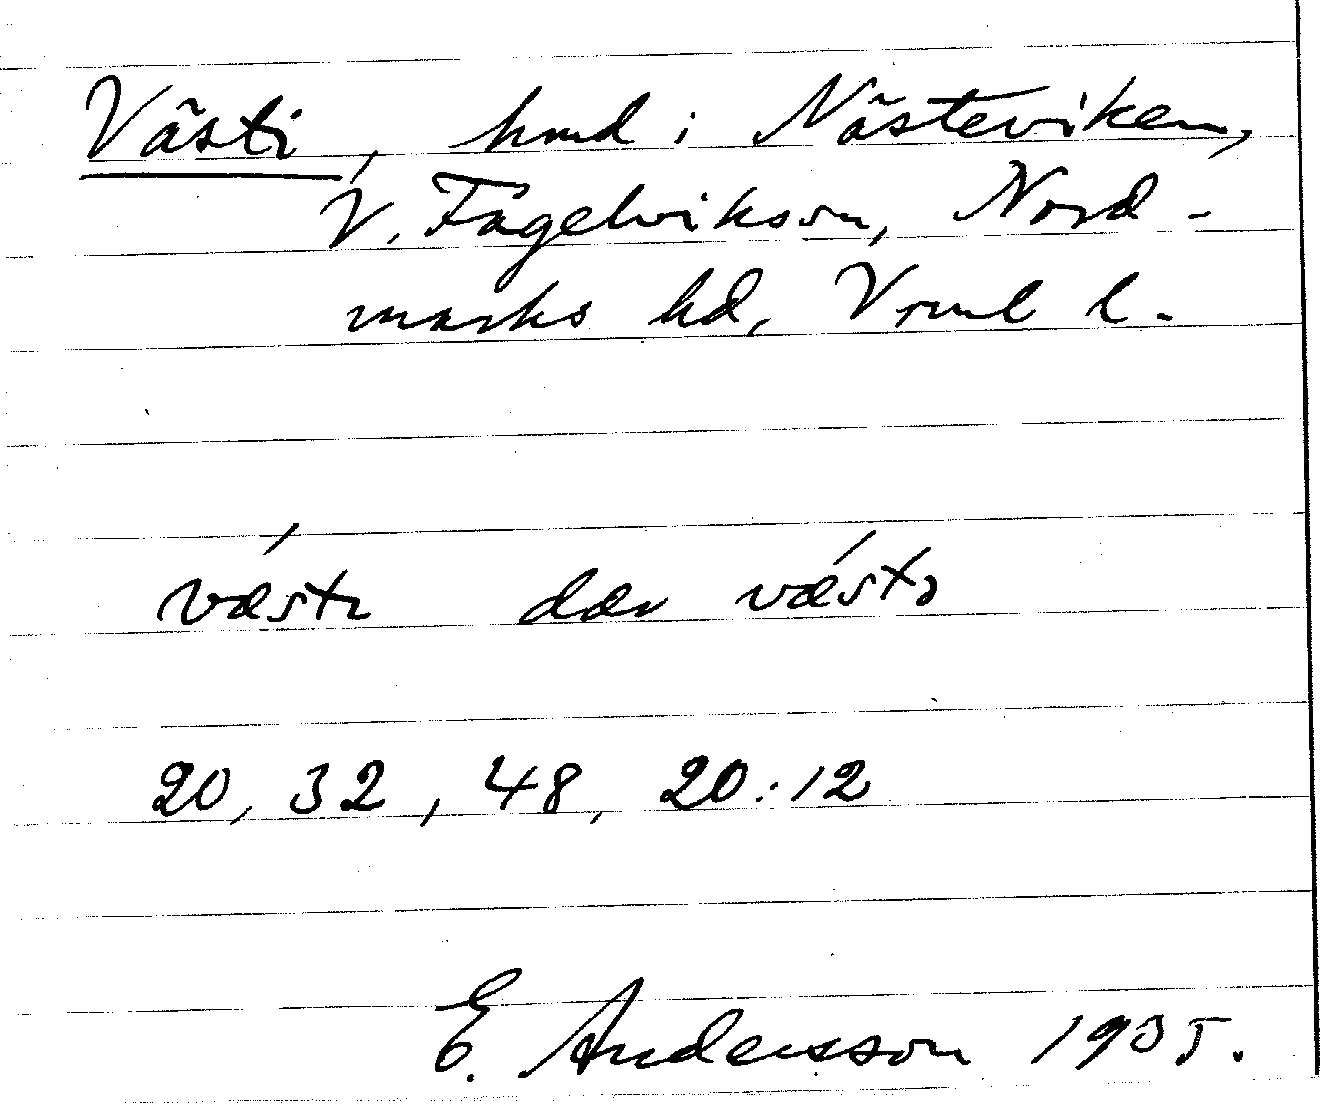 Västi, hmd i Nästeviken,
V. Fågelvikson, Nord-
marks hd, Vrml l.
væsti dær væstɔ
20, 32, 48, 20:12
E. Andersson 1935.